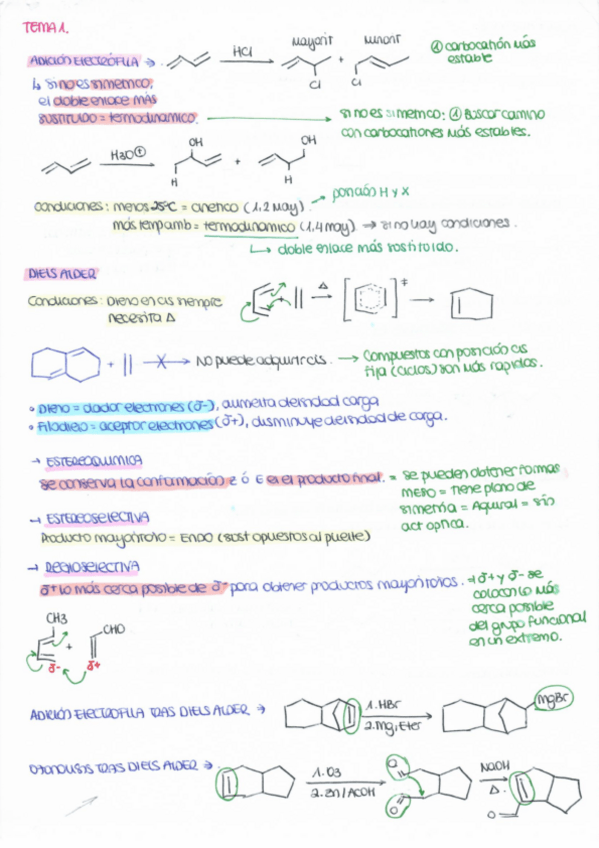 TEMA 1.
ADICIÓN ELECTRÓFILA → HCl Mayorit + Minorit ① carbocatión más
estable
Cl Cl
↳ si no es simetrico,
el doble enlace más
sustituido = termodinamico. → si no es simetrico: ① Buscar camino
con carbocationes más estables.
H3O⊕ OH + OH
H H
Condiciones: menos 25ºC = cinetico (1,2 May) → posición H y X
más temp amb = termodinamico (1,4 may) → si no hay condiciones.
↳ doble enlace más sustituido.
DIELS ALDER
Condiciones: Dieno en cis siempre
necesita Δ
+ Δ ‡
+ No puede adquirir cis. → Compuestos con posición cis
fija (ciclos) son más rapidos.
• Dieno = dador electrones (δ-), aumenta densidad carga
• Filodieno = aceptor electrones (δ+), disminuye densidad de carga.
→ ESTEREOQUIMICA
se conserva la conformación Z ó E en el producto final. = se pueden obtener formas
MESO = tiene plano de
simetria = Aquiral = sin
act optica.
→ ESTEREOSELECTIVA
Producto mayoritario = ENDO (sust opuestos al puente)
→ REGIOSELECTIVA
δ+ lo más cerca posible de δ- para obtener productos mayoritarios. → δ+ y δ- se
colocan lo más
cerca posible
del grupo funcional
en un extremo.
CH3
+ CHO
δ- δ+
ADICIÓN ELECTROFILA TRAS DIELS ALDER → 1. HBr
2. Mg, Eter
MgBr
OZONOLISIS TRAS DIELS ALDER → 1. O3
2. Zn/AcOH
O O
NaOH
Δ
O